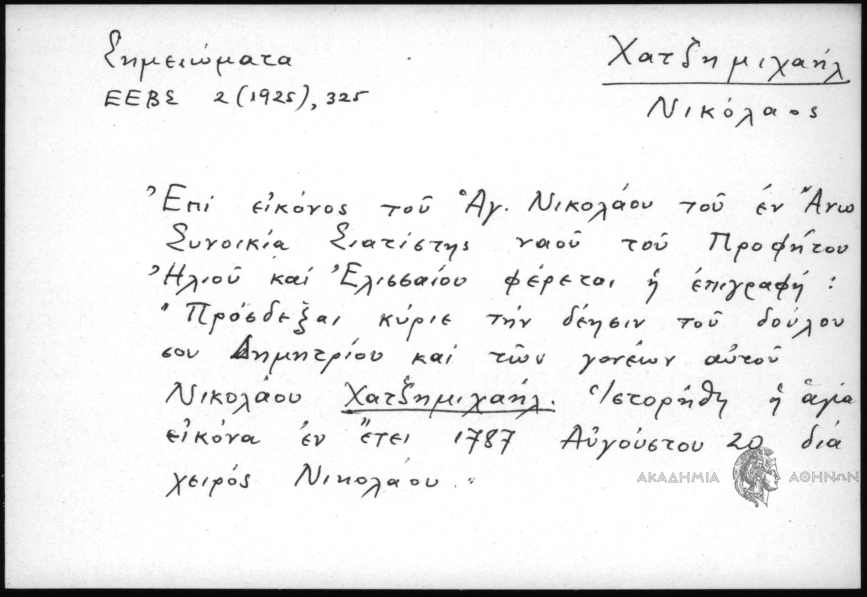 Σημειώματα
ΕΕΒΣ 2 (1925), 325
Χατζημιχαήλ
Νικόλαος
Ἐπί εἰκόνος τοῦ Ἁγ. Νικολάου τοῦ ἐν Ἄνω
Συνοικία Σιατίστης ναοῦ τοῦ Προφήτου
Ἠλιοῦ καί Ἐλισσαίου φέρεται ἡ ἐπιγραφή:
"Πρόσδεξαι κύριε τήν δέησιν τοῦ δούλου
σου Δημητρίου καί τῶν γονέων αὐτοῦ
Νικολάου Χατζημιχαήλ. Ἱστορήθη ἡ ἁγία
εἰκόνα ἐν ἔτει 1787 Αὐγούστου 20 διά
χειρός Νικολάου."
ΑΚΑΔΗΜΙΑ ΑΘΗΝΩΝ